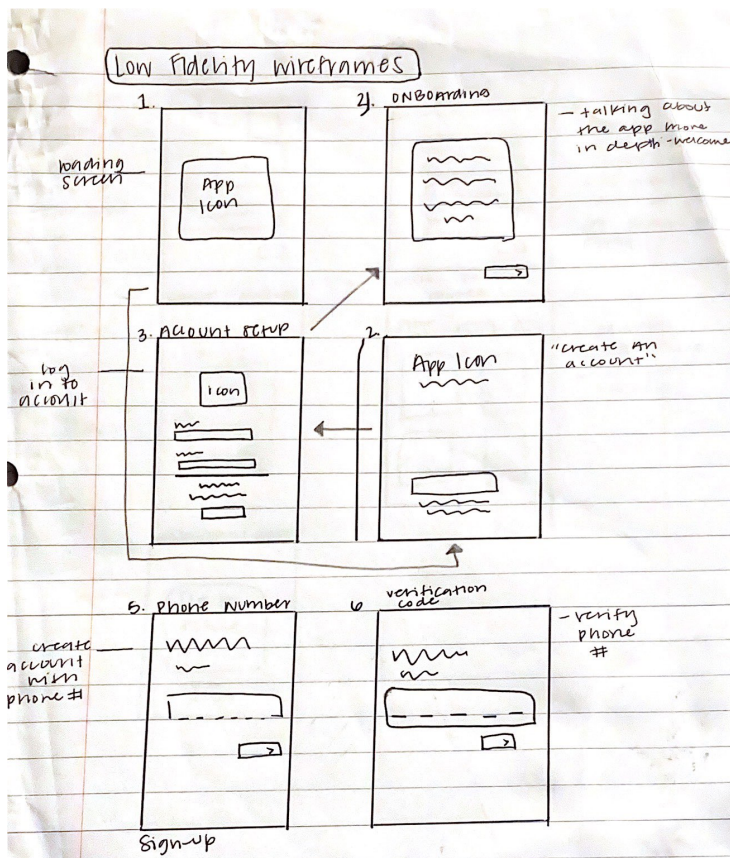 Low Fidelity wireframes
1.
loading
screen
App
Icon
4. ONBOARDING
- talking about
the app more
in depth - welcome
3. Account setup
log
in to
account
icon
2.
App Icon
"create an
account"
5. Phone Number
create
account
with
phone #
Sign-up
6
verification
code
- verify
phone
#